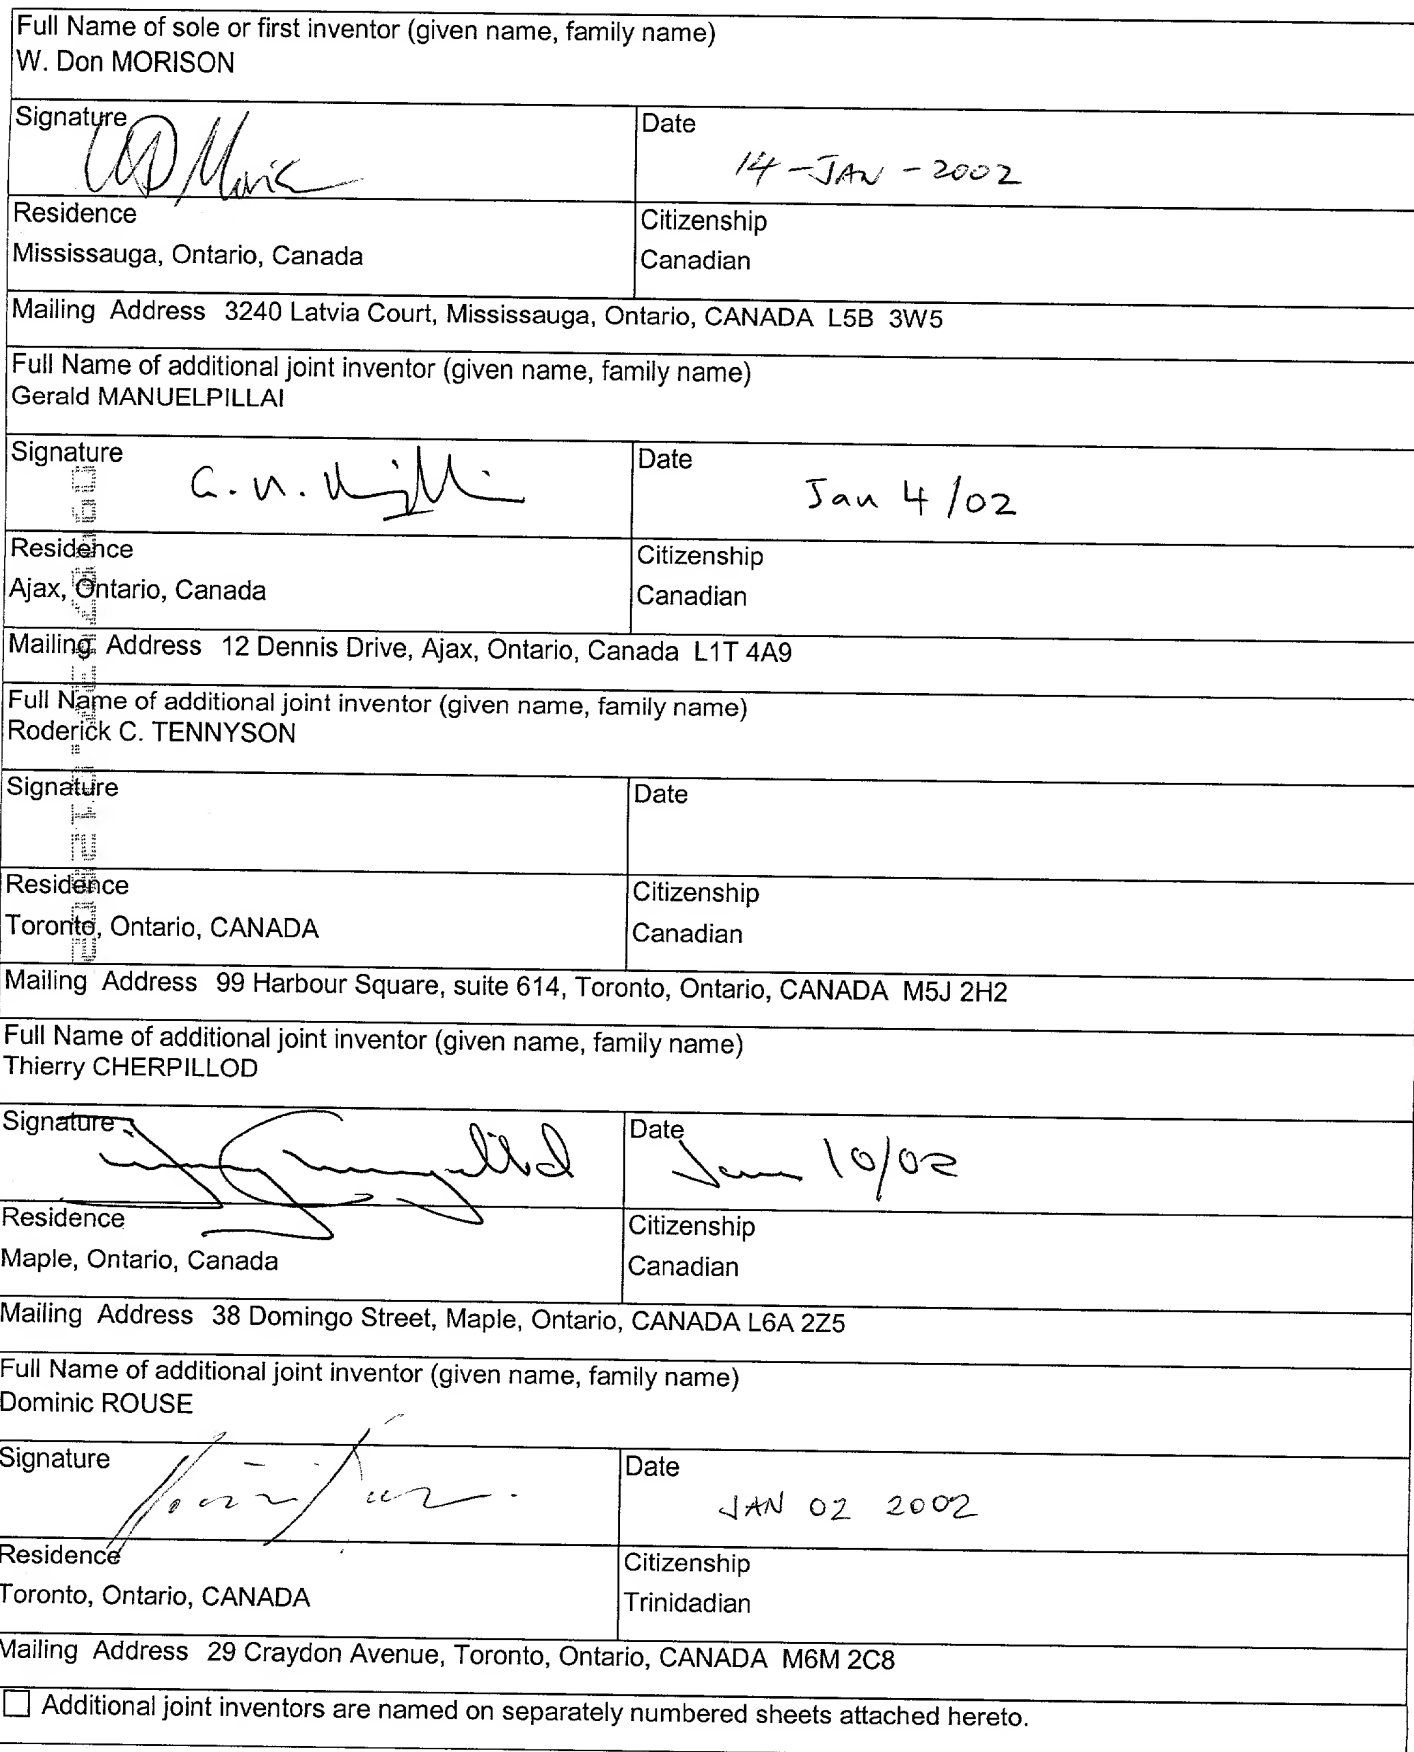 Full Name of sole or first inventor (given name, family name)
W. Don MORISON
Signature
Date
14-JAN-2002
Residence
Citizenship
Mississauga, Ontario, Canada
Canadian
Mailing Address 3240 Latvia Court, Mississauga, Ontario, CANADA L5B 3W5
Full Name of additional joint inventor (given name, family name)
Gerald MANUELPILLAI
Signature
Date
Jan 4/02
Residence
Citizenship
Ajax, Ontario, Canada
Canadian
Mailing Address 12 Dennis Drive, Ajax, Ontario, Canada L1T 4A9
Full Name of additional joint inventor (given name, family name)
Roderick C. TENNYSON
Signature
Date
Residence
Citizenship
Toronto, Ontario, CANADA
Canadian
Mailing Address 99 Harbour Square, suite 614, Toronto, Ontario, CANADA M5J 2H2
Full Name of additional joint inventor (given name, family name)
Thierry CHERPILLOD
Signature
Date
Jan 10/02
Residence
Citizenship
Maple, Ontario, Canada
Canadian
Mailing Address 38 Domingo Street, Maple, Ontario, CANADA L6A 2Z5
Full Name of additional joint inventor (given name, family name)
Dominic ROUSE
Signature
Date
JAN 02 2002
Residence
Citizenship
Toronto, Ontario, CANADA
Trinidadian
Mailing Address 29 Craydon Avenue, Toronto, Ontario, CANADA M6M 2C8
Additional joint inventors are named on separately numbered sheets attached hereto.